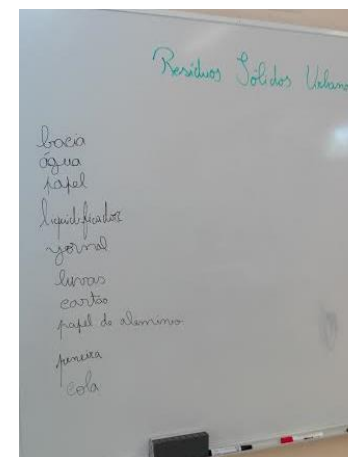 Resíduos Sólidos Urbano
bacia
água
papel
liquidificador
jornal
luvas
cartão
papel de aluminio
peneira
cola